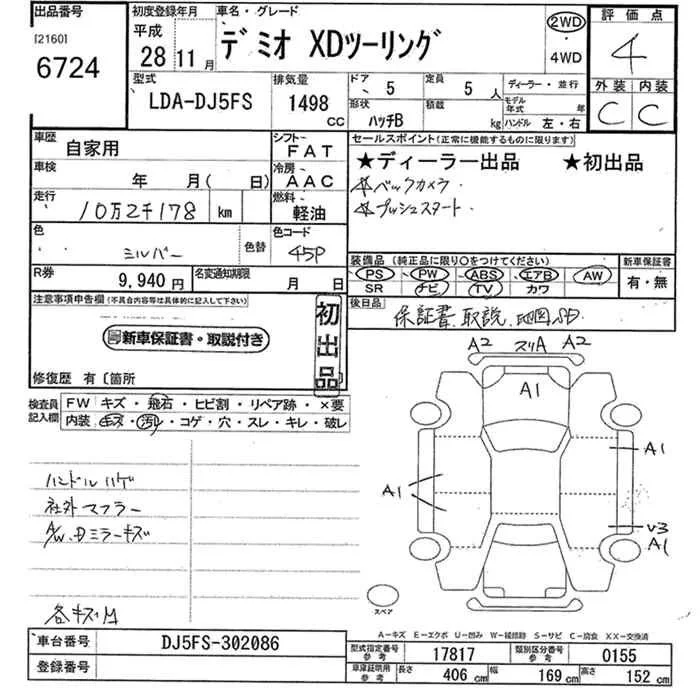 出品番号
[2160]
6724
初度登録年月
平成
28 11月
車名・グレード
デミオ XDツーリング
2WD
・
4WD
評価点
4
外装 内装
C C
型式
LDA-DJ5FS
排気量
1498
CC
ドア
5
定員
5 人
形状
ハッチB
積載
kg
ディーラー・並行
モデル年式 年
ハンドル 左・右
車歴
自家用
シフト
FAT
車検
年 月( 日)
冷房
AAC
走行
10万2千178 km
燃料
軽油
色
シルバー
色替
色コード
45P
R券
9,940 円
名変通知期限
月 日
セールスポイント(正常に機能するものに限ります)
★ディーラー出品 ★初出品
☆バックカメラ・
☆プッシュスタート・
装備品(純正品に限り○をつけてください)
PS PW ABS エアB AW
SR ナビ TV カワ
新車保証書
有・無
後日品
保証書、取説、地図SD
注意事項申告欄(不具合内容等は具体的に記入して下さい)
新車保証書・取説付き
初出品
修復歴 有〔箇所
検査員記入欄
FW キズ・飛石・ヒビ割・リペア跡・×要
内装 キズ・汚れ・コゲ・穴・スレ・キレ・破レ
ハンドルハゲ
社外マフラー
A/W、Dミラーキズ
各キズM
A2 スリA A2
A1
A1
A1
V3
A1
スペア
A-キズ E-エクボ U-凹み W-補修跡 S-サビ C-腐食 XX-交換済
車台番号
DJ5FS-302086
登録番号
型式指定番号
参考
17817
類別区分番号
参考
0155
車庫証明用
参考
長さ 406 cm
幅 169 cm
高さ 152 cm